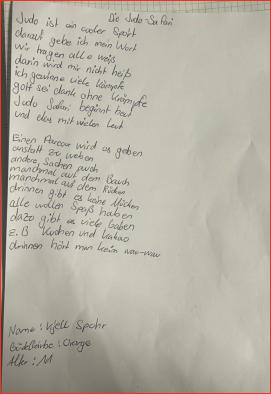 Die Judo-Safari
Judo ist ein cooler Sport
darauf gebe ich mein Wort
wir tragen alle weiß
darin wird mir nicht heiß
ich gewinne viele Kämpfe
gott sei dank ohne Krämpfe
Judo Safari beginnt heut
und das mit vielen Leut
Einen Parcour wird es geben
anstatt zu weben
andere Sachen auch
manchmal auf dem Bauch
manchmal auf dem Rücken
drinnen gibt es keine Mücken
alle wollen Spaß haben
dazu gibt es viele Gaben
z.B Kuchen und Kakao
drinnen hört man kein wau-wau
Name: Kjell Spohr
Gürtelfarbe: Orange
Alter: 11